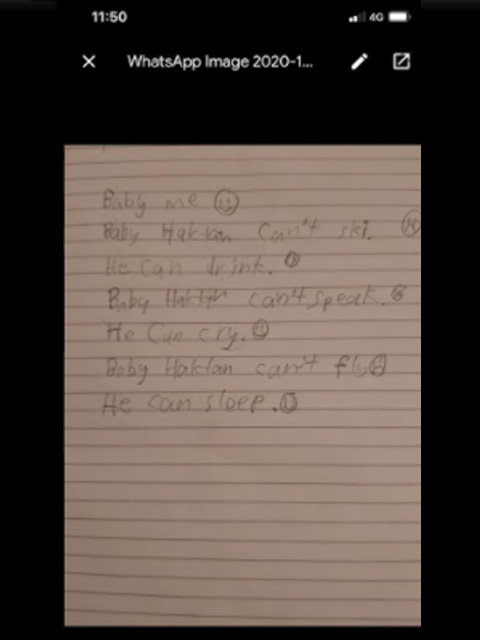 11:50
4G
WhatsApp Image 2020-1...
Baby me
Baby Haktan can't ski.
He can drink.
Baby Haktan can't speak.
He can cry.
Baby Haktan can't fly
He can sleep.